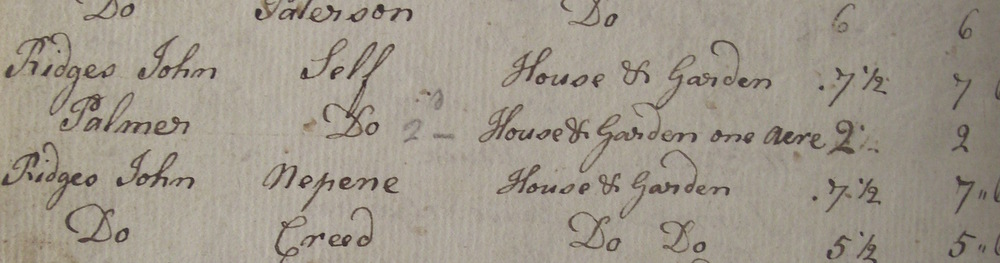 Do Paterson Do 6 6
Ridges John Self House & Garden .7 ½ 7
Palmer Do 2 – House & Garden one acre 2 2
Ridges John Nepene House & Garden .7 ½ 7 "
Do Creed Do Do 5 ½ 5 "